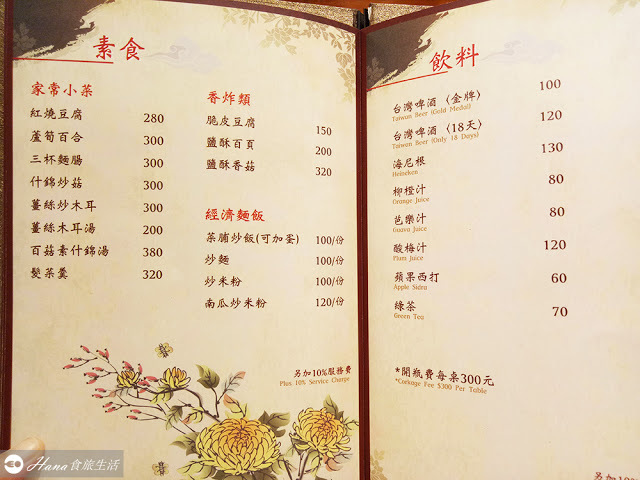 素食
家常小菜
紅燒豆腐 280
蘆筍百合 300
三杯麵腸 300
什錦炒菇 300
薑絲炒木耳 300
薑絲木耳湯 200
百菇素什錦湯 380
髮菜羹 320
香炸類
脆皮豆腐 150
鹽酥百頁 200
鹽酥香菇 320
經濟麵飯
菜脯炒飯(可加蛋) 100/份
炒麵 100/份
炒米粉 100/份
南瓜炒米粉 120/份
另加10%服務費
Plus 10% Service Charge
飲料
台灣啤酒〈金牌〉 100
Taiwan Beer (Gold Medal)
台灣啤酒〈18天〉 120
Taiwan Beer (Only 18 Days)
海尼根 130
Heineken
柳橙汁 80
Orange Juice
芭樂汁 80
Guava Juice
酸梅汁 120
Plum Juice
蘋果西打 60
Apple Sidra
綠茶 70
Green Tea
*開瓶費每桌300元
*Corkage Fee $300 Per Table
另加10%
Hana 食旅生活